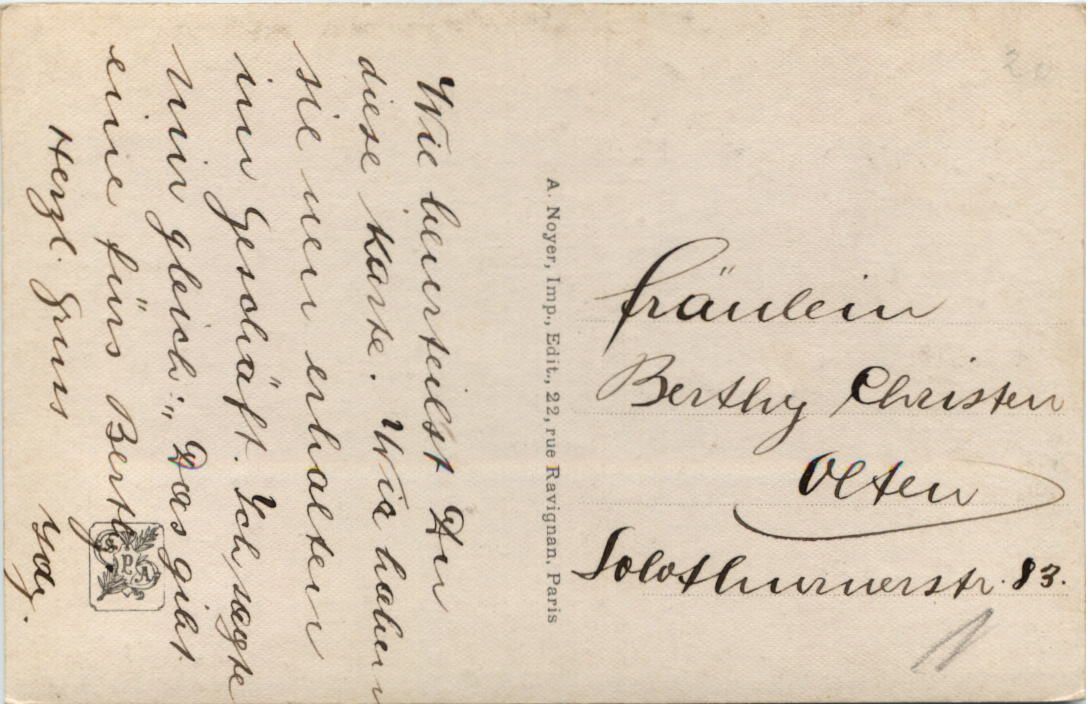 Wie beurteilst Du
diese Karte. Wir haben
sie neu erhalten
im Geschäft. Ich sagte
mir gleich: „Das gibt
eine fürs Berthy
Herzl. Gruss
Idy.
A. Noyer, Imp., Edit., 22, rue Ravignan, Paris
Fräulein
Berthy Christen
Olten
Solothurnerstr. 83.
20